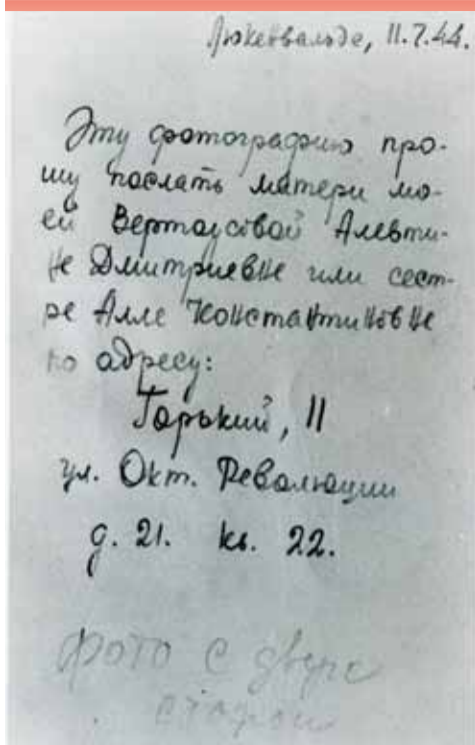 Люкенвальде, 11.7.44.
Эту фотографию про-
шу послать матери мо-
ей Вертоусовой Алевти-
не Дмитриевне или сест-
ре Алле Константиновне
по адресу:
Горький, 11
ул. Окт. Революции
д. 21. кв. 22.
фото с двух
сторон